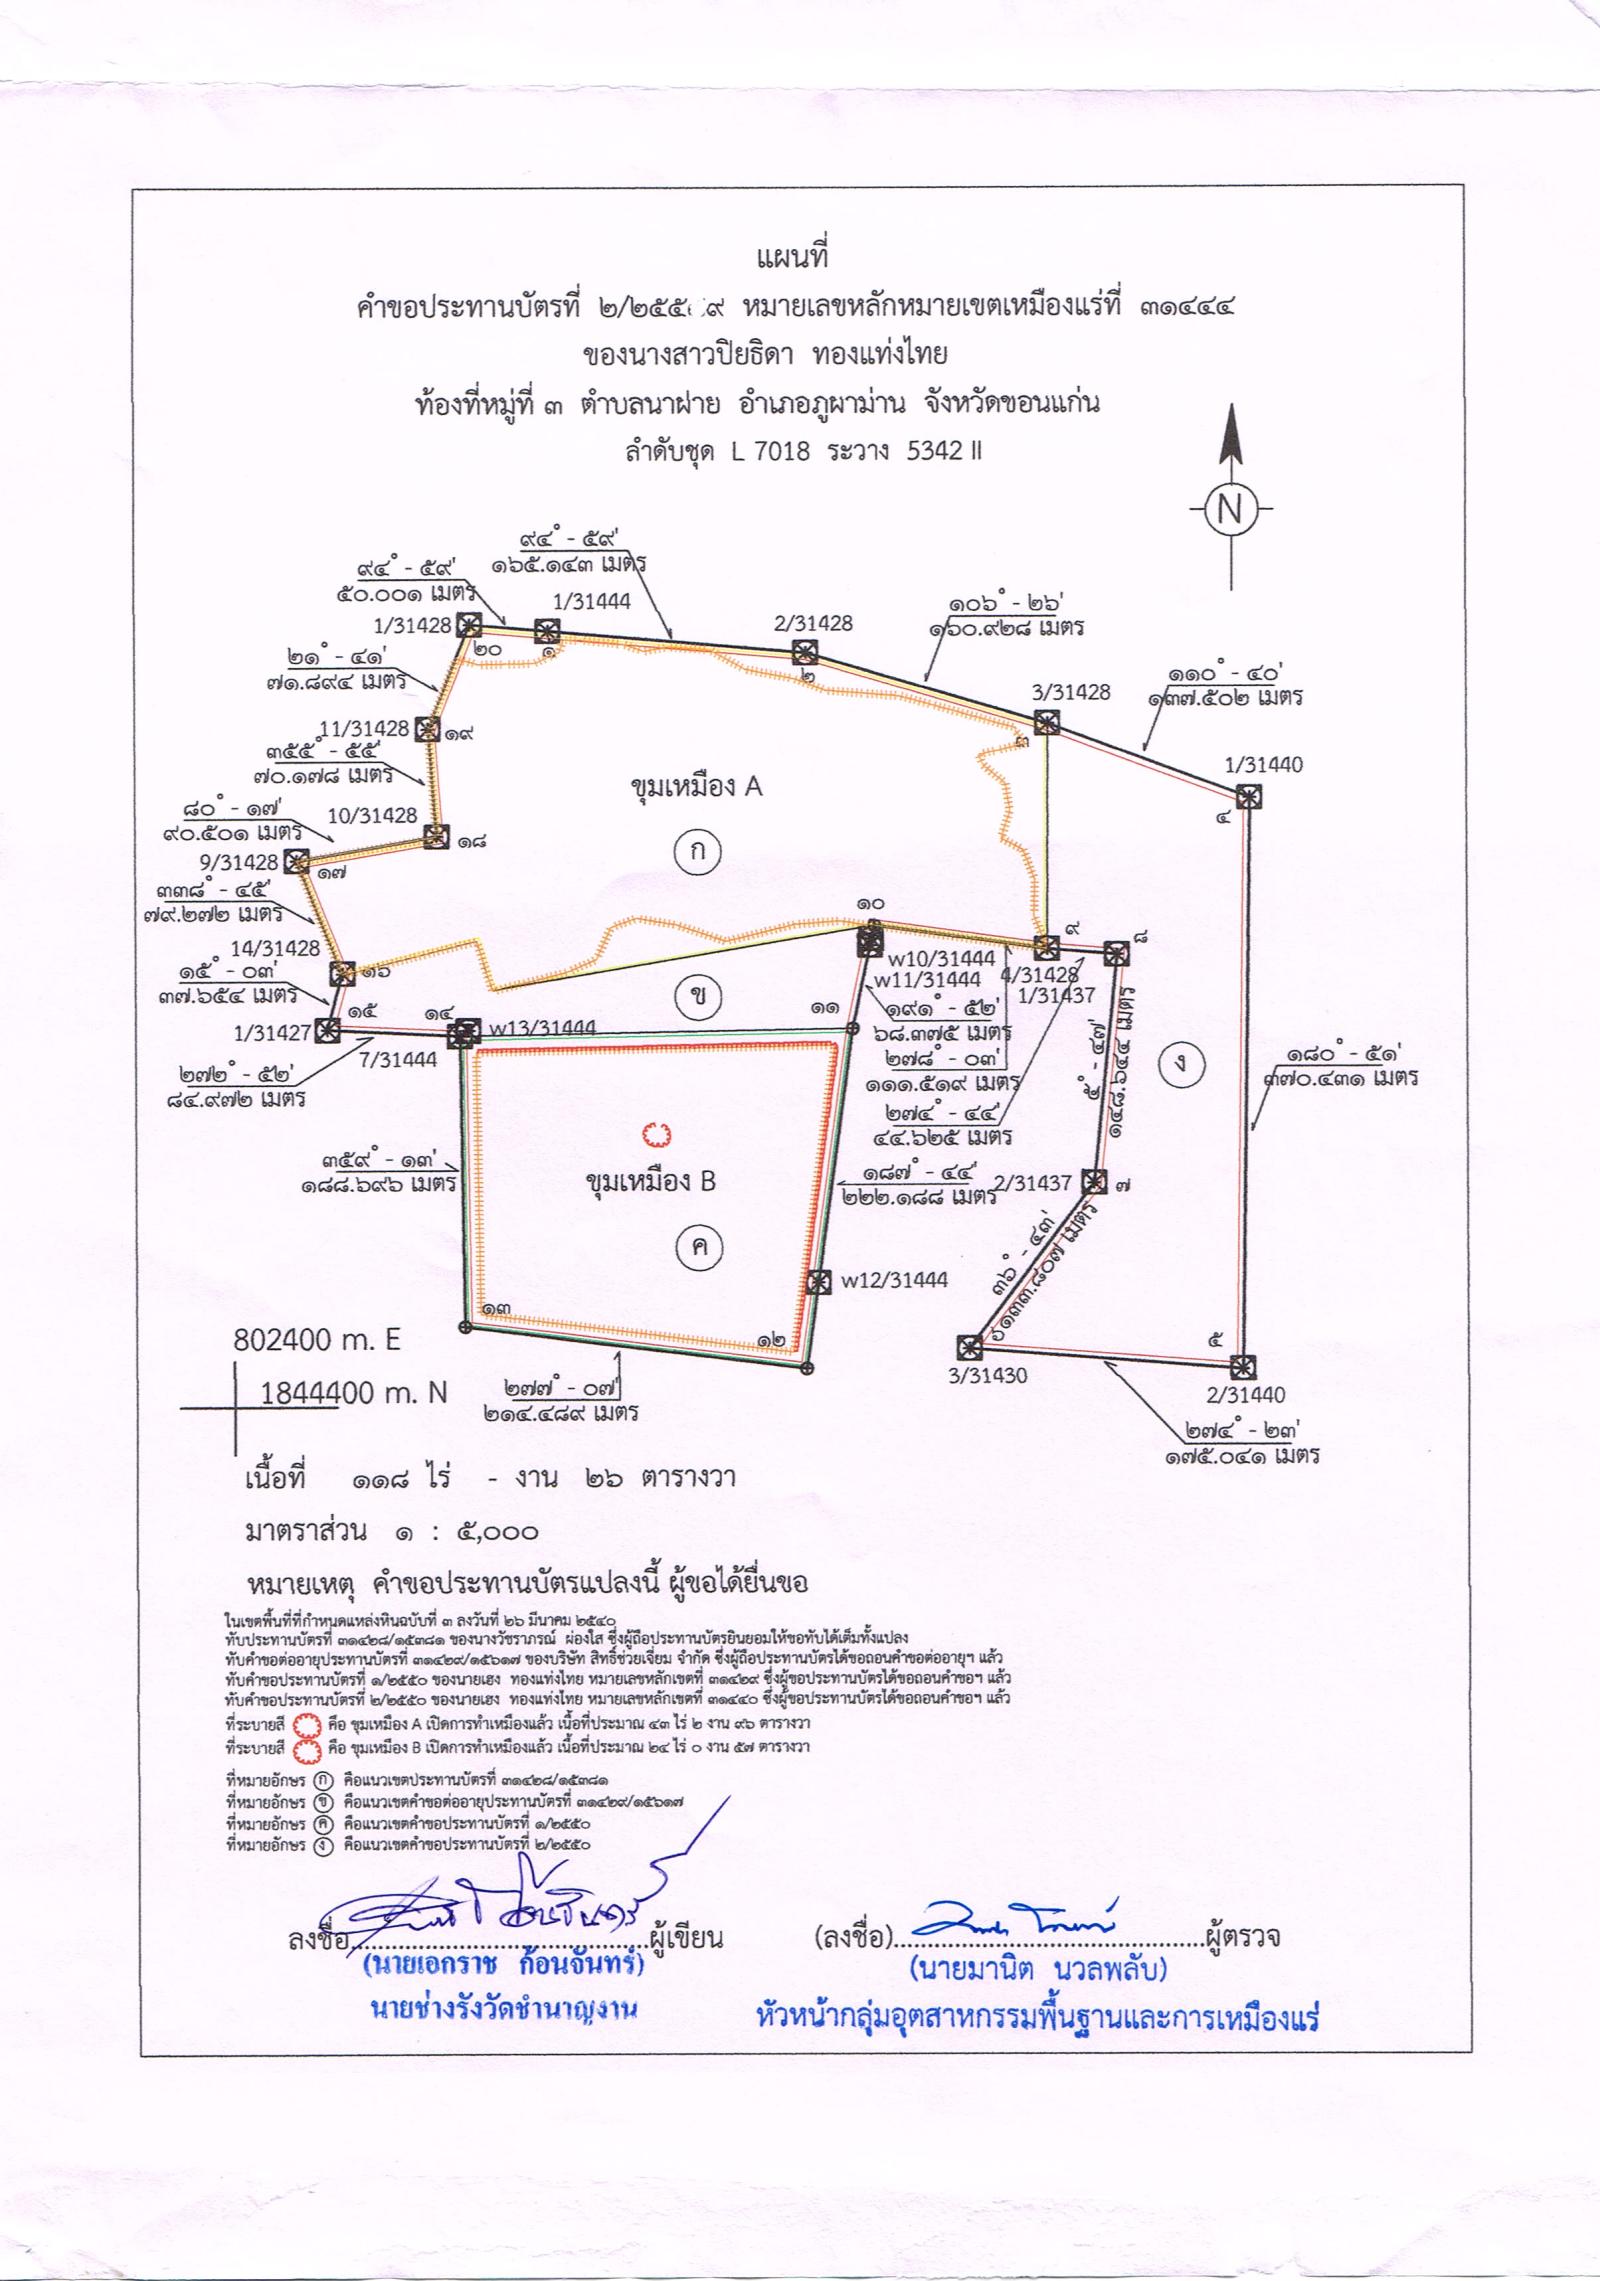 แผนที่
คำขอประทานบัตรที่ ๒/๒๕๕๙ หมายเลขหลักหมายเขตเหมืองแร่ที่ ๓๑๔๔๔
ของนางสาวปิยธิดา ทองแท่งไทย
ท้องที่หมู่ที่ ๓ ตำบลนาฝาย อำเภอภูผาม่าน จังหวัดขอนแก่น
ลำดับชุด L 7018 ระวาง 5342 II
N
๙๔° - ๕๙'
๑๖๕.๑๔๓ เมตร
๙๔° - ๕๙'
๕๐.๐๐๑ เมตร
1/31444
1/31428
๒๐
๑
2/31428
๒
๑๐๖° - ๒๖'
๑๖๐.๙๒๘ เมตร
๒๑° - ๔๑'
๗๑.๘๙๔ เมตร
3/31428
๓
๑๑๐° - ๔๐'
๑๓๗.๕๐๒ เมตร
11/31428
๑๙
1/31440
๔
๓๕๕° - ๕๕'
๗๐.๑๗๘ เมตร
ขุมเหมือง A
ก
๘๐° - ๑๗'
๙๐.๕๐๑ เมตร
10/31428
๑๘
9/31428
๑๗
๓๓๘° - ๔๕'
๗๙.๒๗๒ เมตร
๑๐
๙
๘
14/31428
๑๖
w10/31444
w11/31444
4/31428
1/31437
๑๕° - ๐๓'
๓๗.๖๕๔ เมตร
ข
๑๕
๑๔
๑๑
1/31427
w13/31444
7/31444
๑๙๑° - ๕๒'
๖๘.๓๗๕ เมตร
๒๗๘° - ๐๓'
๑๑๑.๕๑๙ เมตร
๒๗๔° - ๔๔'
๔๔.๖๒๕ เมตร
๕° - ๔๗'
๑๔๘.๖๔๔ เมตร
ง
๑๘๐° - ๕๑'
๓๗๐.๔๓๑ เมตร
๒๗๒° - ๕๒'
๘๔.๙๗๒ เมตร
๓๕๙° - ๑๓'
๑๘๘.๖๙๖ เมตร
ขุมเหมือง B
ค
๑๘๗° - ๔๔'
๒๒๒.๑๘๘ เมตร
2/31437
๗
๓๖° - ๔๓'
๑๓๓.๘๐๗ เมตร
w12/31444
๑๓
๑๒
๖
๕
3/31430
2/31440
802400 m. E
1844400 m. N
๒๗๗° - ๐๗'
๒๑๔.๔๘๙ เมตร
๒๗๔° - ๒๓'
๑๗๕.๐๔๑ เมตร
เนื้อที่ ๑๑๘ ไร่ - งาน ๒๖ ตารางวา
มาตราส่วน ๑ : ๕,๐๐๐
หมายเหตุ คำขอประทานบัตรแปลงนี้ ผู้ขอได้ยื่นขอ
ในเขตพื้นที่ที่กำหนดแหล่งหินฉบับที่ ๓ ลงวันที่ ๒๖ มีนาคม ๒๕๔๐
ทับประทานบัตรที่ ๓๑๔๒๘/๑๕๓๘๑ ของนางวัชราภรณ์ ผ่องใส ซึ่งผู้ถือประทานบัตรยินยอมให้ขอทับได้เต็มทั้งแปลง
ทับคำขอต่ออายุประทานบัตรที่ ๓๑๔๒๙/๑๕๖๑๗ ของบริษัท สิทธิ์ช่วยเจี่ยม จำกัด ซึ่งผู้ถือประทานบัตรได้ขอถอนคำขอต่ออายุฯ แล้ว
ทับคำขอประทานบัตรที่ ๑/๒๕๕๐ ของนายเฮง ทองแท่งไทย หมายเลขหลักเขตที่ ๓๑๔๒๙ ซึ่งผู้ขอประทานบัตรได้ขอถอนคำขอฯ แล้ว
ทับคำขอประทานบัตรที่ ๒/๒๕๕๐ ของนายเฮง ทองแท่งไทย หมายเลขหลักเขตที่ ๓๑๔๔๐ ซึ่งผู้ขอประทานบัตรได้ขอถอนคำขอฯ แล้ว
ที่ระบายสี คือ ขุมเหมือง A เปิดการทำเหมืองแล้ว เนื้อที่ประมาณ ๔๓ ไร่ ๒ งาน ๙๖ ตารางวา
ที่ระบายสี คือ ขุมเหมือง B เปิดการทำเหมืองแล้ว เนื้อที่ประมาณ ๒๔ ไร่ ๐ งาน ๕๗ ตารางวา
ที่หมายอักษร ก คือแนวเขตประทานบัตรที่ ๓๑๔๒๘/๑๕๓๘๑
ที่หมายอักษร ข คือแนวเขตคำขอต่ออายุประทานบัตรที่ ๓๑๔๒๙/๑๕๖๑๗
ที่หมายอักษร ค คือแนวเขตคำขอประทานบัตรที่ ๑/๒๕๕๐
ที่หมายอักษร ง คือแนวเขตคำขอประทานบัตรที่ ๒/๒๕๕๐
ลงชื่อ..............................ผู้เขียน (ลงชื่อ)..............................ผู้ตรวจ
(นายเอกราช ก้อนจันทร์) (นายมานิต นวลพลับ)
นายช่างรังวัดชำนาญงาน หัวหน้ากลุ่มอุตสาหกรรมพื้นฐานและการเหมืองแร่